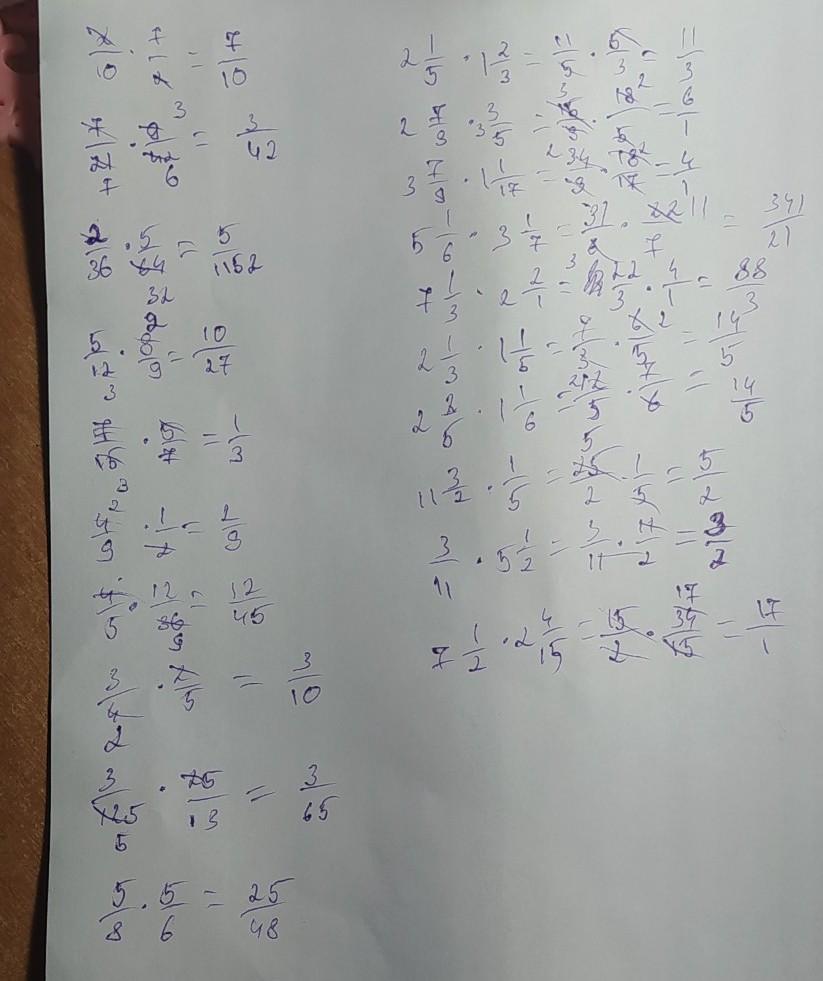 2/10 · 7/2 = 7/10
7/21 · 9/42 = 3/42
7 6 3
2/36 · 5/64 = 5/1152
32
5/12 · 8/9 = 10/27
3 2
7/15 · 5/7 = 1/3
3
4/9 · 1/2 = 2/9
2
4/5 · 12/36 = 12/45
9
3/4 · 2/5 = 3/10
2
3/125 · 25/13 = 3/65
5
5/8 · 5/6 = 25/48
2 1/5 · 1 2/3 = 11/5 · 5/3 = 11/3
2 7/9 · 3 3/5 = /9 · 18/5 = 6/1
3 2
3 7/9 · 1 1/17 = 34/9 · 18/17 = 4/1
2 2
5 1/6 · 3 1/7 = 31/6 · 22/7 = 341/21
3 11
7 1/3 · 2 2/1 = 22/3 · 4/1 = 88/3
2 1/3 · 1 1/5 = 7/3 · 6/5 = 14/5
2
2 2/5 · 1 1/6 = 12/5 · 7/6 = 14/5
2
11 3/2 · 1/5 = 25/2 · 1/5 = 5/2
5
3/11 · 5 1/2 = 3/11 · 11/2 = 3/2
7 1/2 · 2 4/15 = 15/2 · 34/15 = 17/1
17